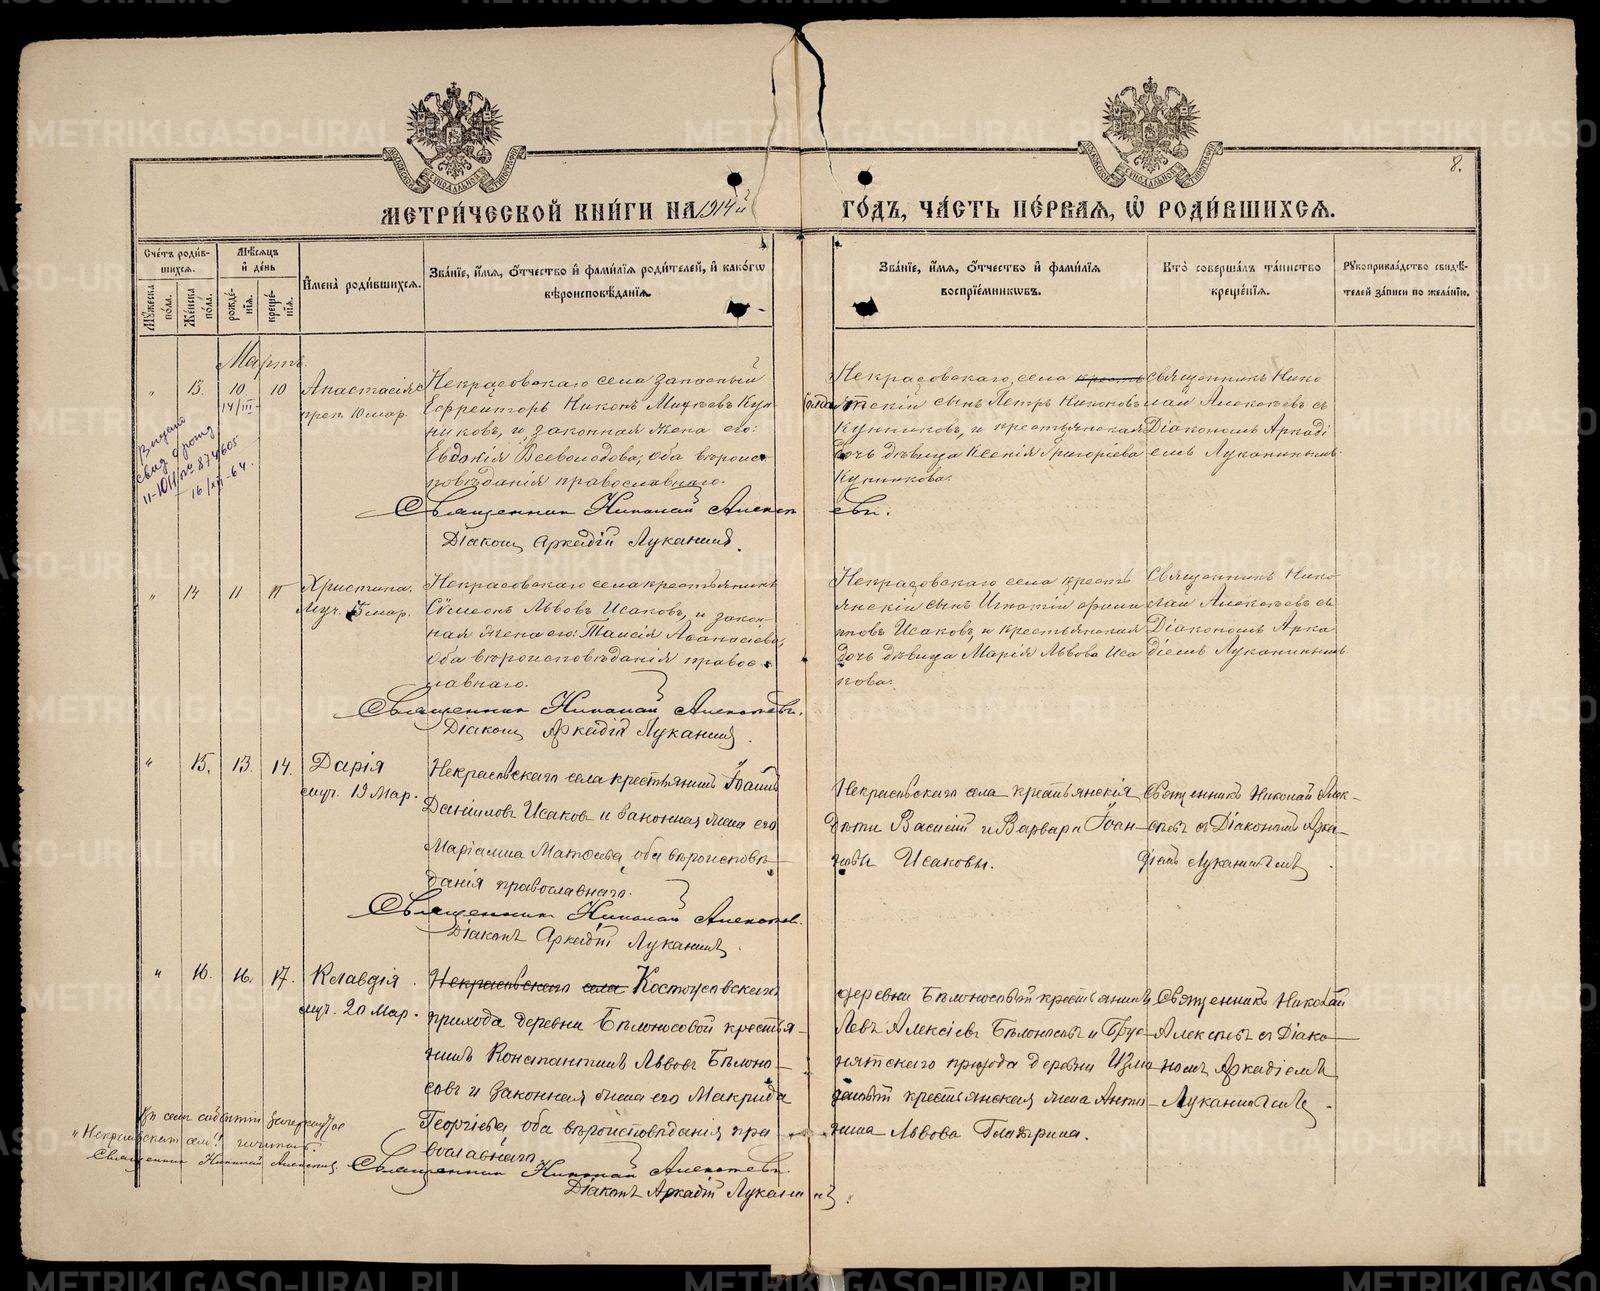 МЕТРИ́ЧЕСКОЙ КНИ́ГИ НА 1914й ГО́ДЪ, ЧА́СТЬ ПЕ́РВАѦ, Ѡ҆ РОДИ́ВШИХСѦ.
8.
Сче́тъ роди́в-
шихсѧ.
Мꙋ́жеска по́ла.
Же́нска по́ла.
Мѣ́сѧцъ
и҆ де́нь
рожде́-
нїѧ.
креще́-
нїѧ.
И҆мена̀ роди́вшихсѧ.
Зва́нїе, и҆́мѧ, ѻ҆́тчество и҆ фами́лїѧ роди́телей, и҆ како́гѡ
вѣроисповѣ́данїѧ.
Зва́нїе, и҆́мѧ, ѻ҆́тчество и҆ фами́лїѧ
воспрїе́мникѡвъ.
Кто̀ соверша́лъ та́инство
креще́нїѧ.
Рꙋкоприкла́дство свидѣ́-
телей за́писи по жела́нїю.
Мартъ.
" 13. 10 10 Анастасія
преп. 10 мар.
14/III-
Выдано
свид. о рожд
II-ЮН № 874605
16/XII-64.
Некрасовскаго села запасный
Ефрейторъ Никонъ
и законная жена его:
Евдокія Всеволодова, оба вѣроис-
повѣданія православнаго.
Священник Николай Алексѣевъ.
Діаконъ Аркадій Луканинъ.
Некрасовскаго села крестъ
сынъ Петръ Никоновъ
и крестьянская
дочь дѣвица Ксенія Григоріева
Священникъ Нико
лай Алексѣевъ съ
Діакономъ Аркаді
емъ Луканинымъ
" 14 11 11 Христина.
Муч. мар.
Некрасовскаго села крестьянинъ
Сѵмеонъ Львовъ Исаковъ, и закон-
ная жена его: Таисія Аѳанасіева,
Оба вѣроисповѣданія правос-
лавнаго.
Священник Николай Алексѣевъ.
Діаконъ Аркадій Луканинъ.
Некрасовскаго села кресть
янскій сынъ Игнатій
Исаковъ, и крестьянская
дочь дѣвица Марія Львова Иса
кова.
Священникъ Нико
лай Алексѣевъ съ
Діакономъ Арка
діемъ Луканинымъ
" 15. 13. 14. Дарія
муч. 19 Мар.
Некрасовскаго села крестьянинъ Іоаннъ
Данииловъ Исаковъ и законная жена его
Маріамна оба вѣроисповѣ-
данія православнаго.
Священник Николай Алексѣев.
Діаконъ Аркадій Луканинъ.
Некрасовскаго села крестьянскія
дѣти Василій и Варвара Іоан-
новы Исаковы.
Священникъ Николай Алек-
сѣевъ съ Діакономъ Арка-
діемъ Луканинымъ.
" 16. 16. 17. Клавдія
муч. 20 Мар.
Некрасовскаго села Костоусовскаго
прихода деревни Бѣлоносовой крестья-
нинъ Константинъ Львовъ Бѣлоно-
совъ и законная жена его Макрида
Георгіева оба вѣроисповѣданія пра-
вославнаго.
Священник Николай Алексѣевъ.
Діаконъ Аркадій Луканинъ.
деревни Бѣлоносовой крестьянинъ
Левъ Алексіевъ Бѣлоносовъ и Брус-
нятскаго прихода деревни Измо
деновой крестьянская жена Анто-
нина Львова
Священникъ Николай
Алексѣевъ съ Діако-
номъ Аркадіемъ
Луканинымъ.
Въ семъ событіи зачеркнутое
"Некрасовскаго села" читать.
Священник Николай Алексѣевъ.
METRIKI.GASO-URAL.RU